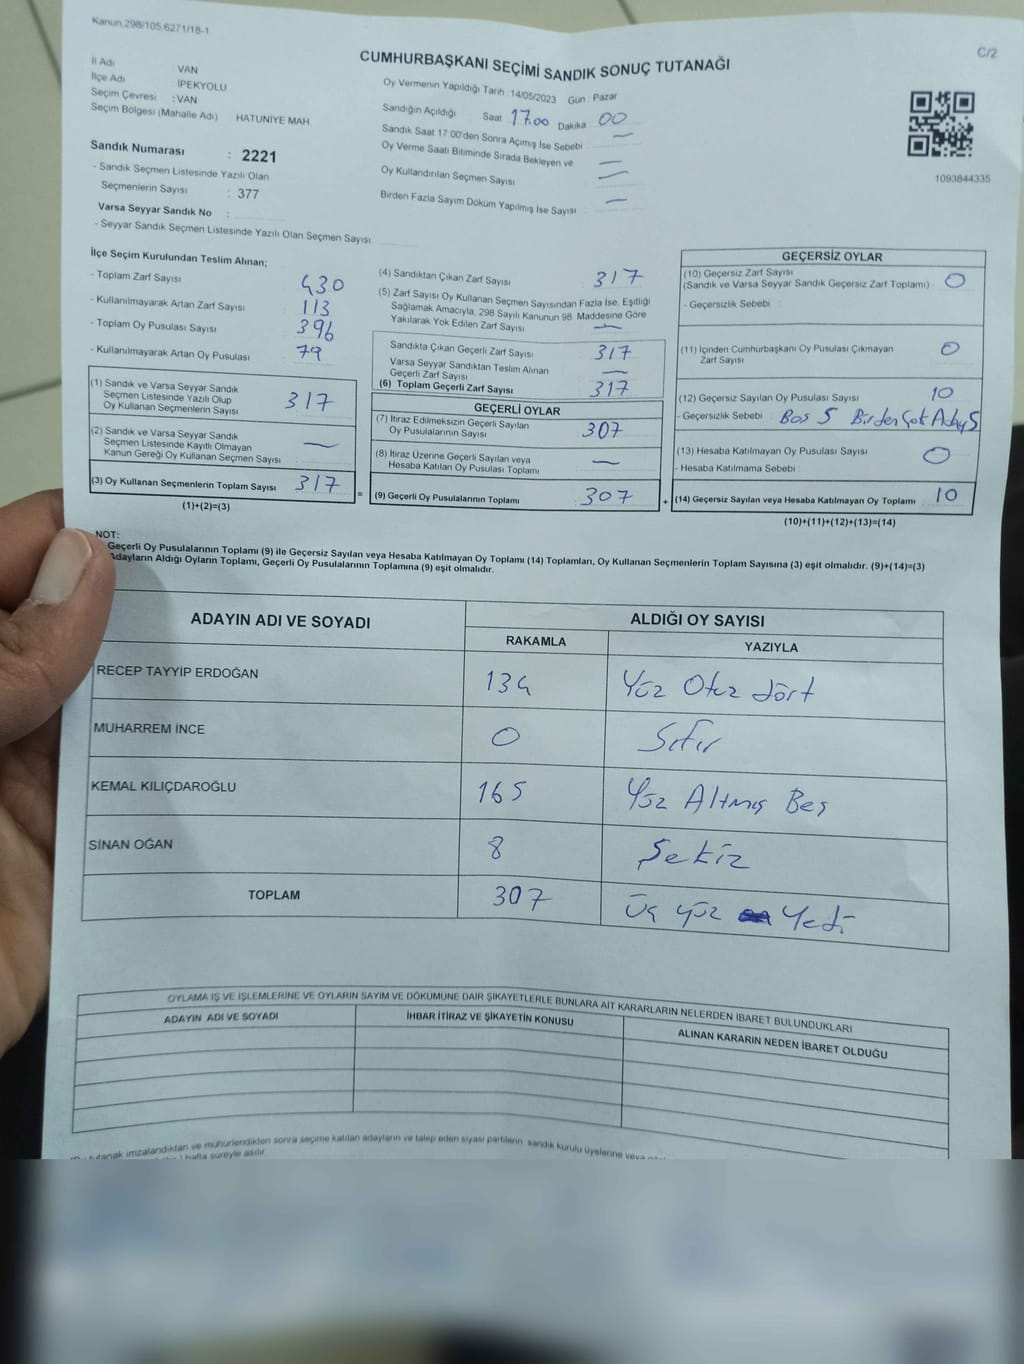 Kanun.298/105;6271/18-1
C/2
CUMHURBAŞKANI SEÇİMİ SANDIK SONUÇ TUTANAĞI
İl Adı VAN
İlçe Adı İPEKYOLU
Seçim Çevresi : VAN
Seçim Bölgesi (Mahalle Adı) HATUNİYE MAH
Sandık Numarası : 2221
- Sandık Seçmen Listesinde Yazılı Olan
Seçmenlerin Sayısı : 377
Varsa Seyyar Sandık No :
- Seyyar Sandık Seçmen Listesinde Yazılı Olan Seçmen Sayısı:
Oy Vermenin Yapıldığı Tarih :14/05/2023 Gün : Pazar
Sandığın Açıldığı Saat 17.00 Dakika 00
Sandık Saat 17:00'den Sonra Açımış İse Sebebi —
Oy Verme Saati Bitiminde Sırada Bekleyen ve —
Oy Kullandırılan Seçmen Sayısı —
Birden Fazla Sayım Döküm Yapılmış İse Sayısı —
1093844335
İlçe Seçim Kurulundan Teslim Alınan;
- Toplam Zarf Sayısı 430
- Kullanılmayarak Artan Zarf Sayısı 113
- Toplam Oy Pusulası Sayısı 396
- Kullanılmayarak Artan Oy Pusulası 79
(1) Sandık ve Varsa Seyyar Sandık
Seçmen Listesinde Yazılı Olup
Oy Kullanan Seçmenlerin Sayısı 317
(2) Sandık ve Varsa Seyyar Sandık
Seçmen Listesinde Kayıtlı Olmayan
Kanun Gereği Oy Kullanan Seçmen Sayısı —
(3) Oy Kullanan Seçmenlerin Toplam Sayısı 317
(1)+(2)=(3)
=
(4) Sandıktan Çıkan Zarf Sayısı 317
(5) Zarf Sayısı Oy Kullanan Seçmen Sayısından Fazla İse, Eşitliği
Sağlamak Amacıyla, 298 Sayılı Kanunun 98. Maddesine Göre
Yakılarak Yok Edilen Zarf Sayısı —
Sandıkta Çıkan Geçerli Zarf Sayısı 317
Varsa Seyyar Sandıktan Teslim Alınan
Geçerli Zarf Sayısı —
(6) Toplam Geçerli Zarf Sayısı 317
GEÇERLİ OYLAR
(7) İtiraz Edilmeksizin Geçerli Sayılan
Oy Pusulalarının Sayısı 307
(8) İtiraz Üzerine Geçerli Sayılan veya
Hesaba Katılan Oy Pusulası Toplamı —
(9) Geçerli Oy Pusulalarının Toplamı 307
+
GEÇERSİZ OYLAR
(10) Geçersiz Zarf Sayısı
(Sandık ve Varsa Seyyar Sandık Geçersiz Zarf Toplamı) 0
- Geçersizlik Sebebi :
(11) İçinden Cumhurbaşkanı Oy Pusulası Çıkmayan
Zarf Sayısı 0
(12) Geçersiz Sayılan Oy Pusulası Sayısı 10
- Geçersizlik Sebebi : Boş 5 Birden Çok Aday 5
(13) Hesaba Katılmayan Oy Pusulası Sayısı 0
- Hesaba Katılmama Sebebi :
(14) Geçersiz Sayılan veya Hesaba Katılmayan Oy Toplamı 10
(10)+(11)+(12)+(13)=(14)
NOT:
Geçerli Oy Pusulalarının Toplamı (9) ile Geçersiz Sayılan veya Hesaba Katılmayan Oy Toplamı (14) Toplamları, Oy Kullanan Seçmenlerin Toplam Sayısına (3) eşit olmalıdır. (9)+(14)=(3)
Adayların Aldığı Oyların Toplamı, Geçerli Oy Pusulalarının Toplamına (9) eşit olmalıdır.
ADAYIN ADI VE SOYADI
ALDIĞI OY SAYISI
RAKAMLA YAZIYLA
RECEP TAYYİP ERDOĞAN 134 Yüz Otuz dört
MUHARREM İNCE 0 Sıfır
KEMAL KILIÇDAROĞLU 165 Yüz Altmış Beş
SİNAN OĞAN 8 Sekiz
TOPLAM 307 Üç yüz Yedi
OYLAMA İŞ VE İŞLEMLERİNE VE OYLARIN SAYIM VE DÖKÜMÜNE DAİR ŞİKAYETLERLE BUNLARA AİT KARARLARIN NELERDEN İBARET BULUNDUKLARI
ADAYIN ADI VE SOYADI İHBAR İTİRAZ VE ŞİKAYETİN KONUSU ALINAN KARARIN NEDEN İBARET OLDUĞU
tutanak imzalandıktan ve mühürlendikten sonra seçime katılan adayların ve talep eden siyasi partilerin sandık kurulu üyelerine veya
hafta süreyle asılır.